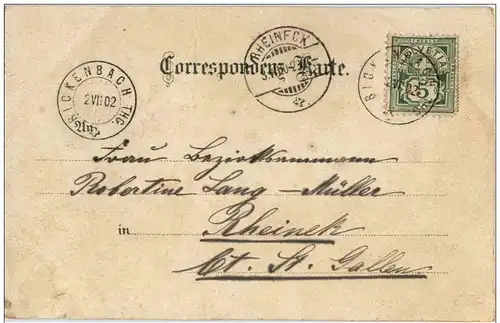 RHEINECK
Correspondenz-Karte.
BICKENBACH THG.
2 VII 02
HELVETIA
5
Frau Bezirksammann
Robertine Lang-Müller
in Rheinek
Ct. St. Gallen